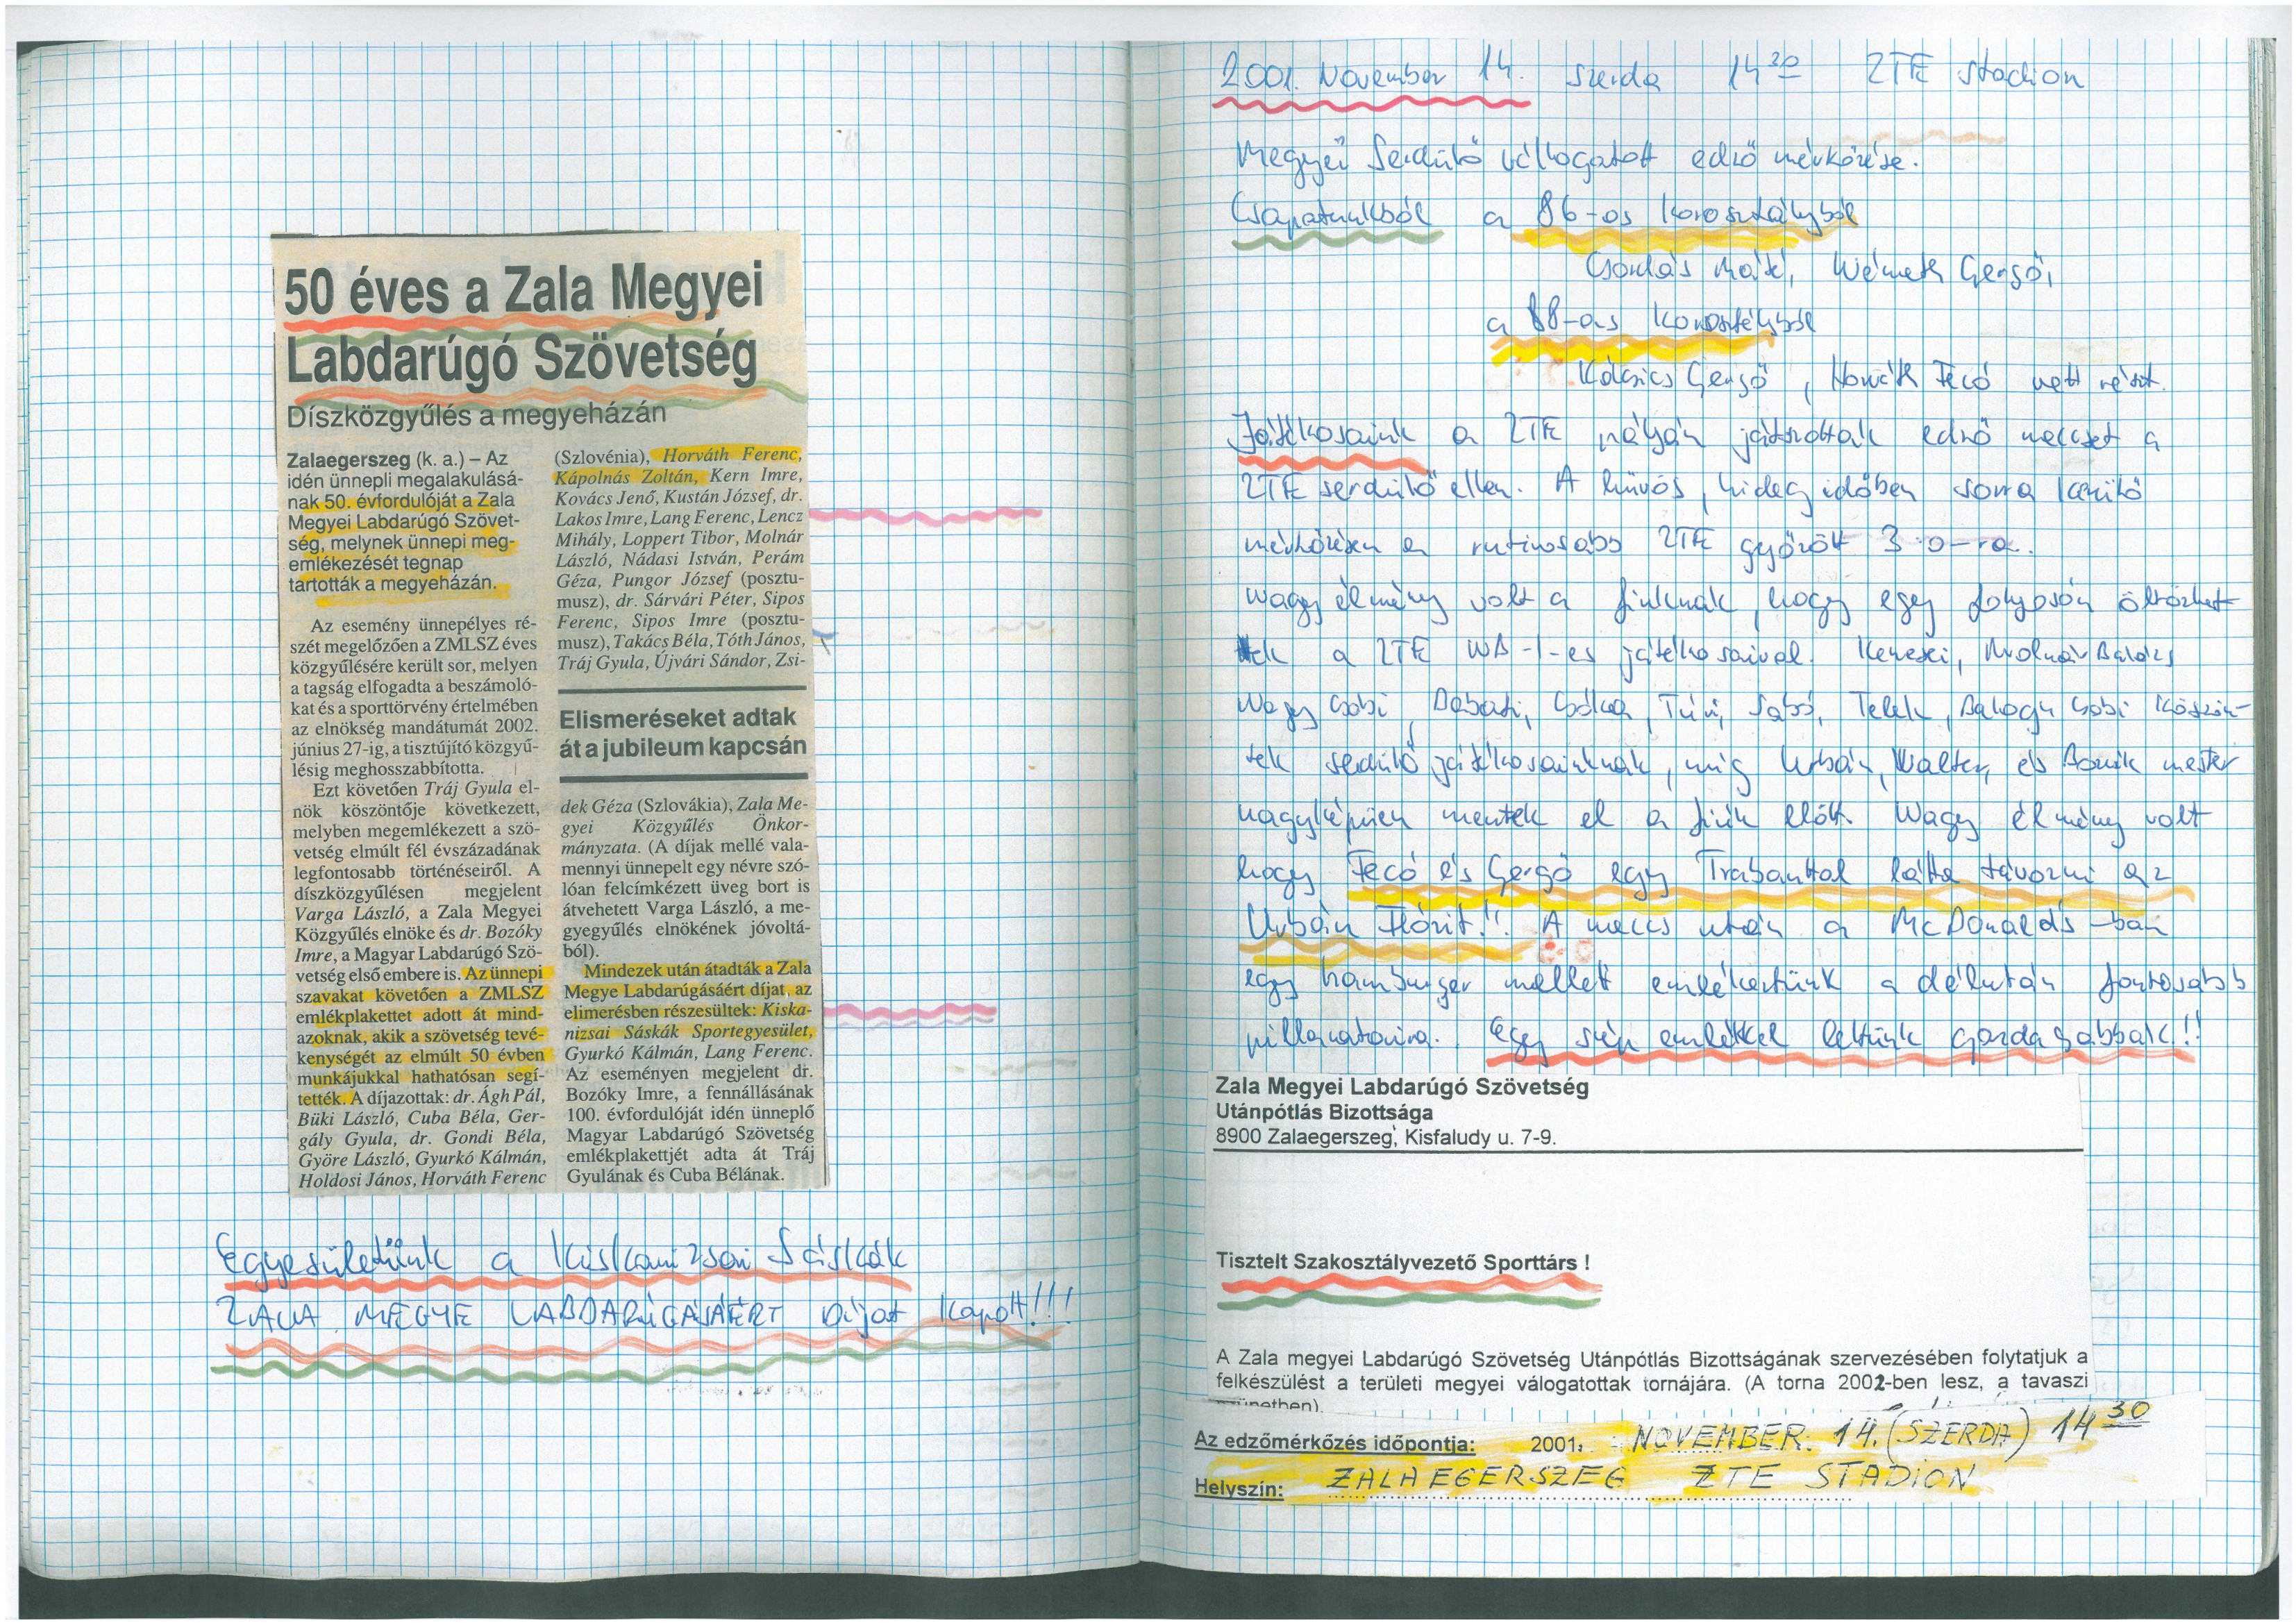 50 éves a Zala Megyei
Labdarúgó Szövetség
Díszközgyűlés a megyeházán
Zalaegerszeg (k. a.) – Az
idén ünnepli megalakulásá-
nak 50. évfordulóját a Zala
Megyei Labdarúgó Szövet-
ség, melynek ünnepi meg-
emlékezését tegnap
tartották a megyeházán.
Az esemény ünnepélyes ré-
szét megelőzően a ZMLSZ éves
közgyűlésére került sor, melyen
a tagság elfogadta a beszámoló-
kat és a sporttörvény értelmében
az elnökség mandátumát 2002.
június 27-ig, a tisztújító közgyű-
lésig meghosszabbította.
Ezt követően Tráj Gyula el-
nök köszöntője következett,
melyben megemlékezett a szö-
vetség elmúlt fél évszázadának
legfontosabb történéseiről. A
díszközgyűlésen megjelent
Varga László, a Zala Megyei
Közgyűlés elnöke és dr. Bozóky
Imre, a Magyar Labdarúgó Szö-
vetség első embere is. Az ünnepi
szavakat követően a ZMLSZ
emlékplakettet adott át mind-
azoknak, akik a szövetség tevé-
kenységét az elmúlt 50 évben
munkájukkal hathatósan segí-
tették. A díjazottak: dr. Ágh Pál,
Büki László, Cuba Béla, Ger-
gály Gyula, dr. Gondi Béla,
Györe László, Gyurkó Kálmán,
Holdosi János, Horváth Ferenc
(Szlovénia), Horváth Ferenc,
Kápolnás Zoltán, Kern Imre,
Kovács Jenő, Kustán József, dr.
Lakos Imre, Lang Ferenc, Lencz
Mihály, Loppert Tibor, Molnár
László, Nádasi István, Perám
Géza, Pungor József (posztu-
musz), dr. Sárvári Péter, Sipos
Ferenc, Sipos Imre (posztu-
musz), Takács Béla, Tóth János,
Tráj Gyula, Újvári Sándor, Zsi-
Elismeréseket adtak
át a jubileum kapcsán
dek Géza (Szlovákia), Zala Me-
gyei Közgyűlés Önkor-
mányzata. (A díjak mellé vala-
mennyi ünnepelt egy névre szó-
lóan felcímkézett üveg bort is
átvehetett Varga László, a me-
gyegyűlés elnökének jóvoltá-
ból).
Mindezek után átadták a Zala
Megye Labdarúgásáért díjat, az
elimerésben részesültek: Kiska-
nizsai Sáskák Sportegyesület,
Gyurkó Kálmán, Lang Ferenc.
Az eseményen megjelent dr.
Bozóky Imre, a fennállásának
100. évfordulóját idén ünneplő
Magyar Labdarúgó Szövetség
emlékplakettjét adta át Tráj
Gyulának és Cuba Bélának.
Egyesületünk a Kiskanizsai Sáskák
ZALA MEGYE LABDARÚGÁSÁÉRT Díjat kapott!!!
2001. November 14. szerda 14 30 ZTE stadion
Megyei Serdülő válogatott edző mérkőzése.
Csapatunkból a 86-os korosztályból
Csordás Máté, Németh Gergő,
a 88-as korosztályból
Gergő, Horváth Fecó vett részt.
Játékosaink a ZTE pályán játszottak edző meccset a
ZTE serdülő ellen. A hűvös, hideg időben sorra kerülő
mérkőzésen a rutinosabb ZTE győzött 3:0-ra.
Nagy élmény volt a fiuknak, hogy egy folyosón öltözhet
tek a ZTE NB-I-es játékosaival. Kenesei, Molnár Balázs
Nagy Csobi, Babati, Csóka, Túri, Sabó, Telek, Balogh Csobi köszön-
tek serdülő játékosainknak, míg Urbán, Waltner, és Bozsik mester
nagyképűen mentek el a fiúk előtt. Nagy élmény volt
hogy Fecó és Gergő egy Trabanttal látta távozni az
Urbán Flórit!! A meccs után a McDonalds-ban
egy hamburger mellett emlékeztünk a délután fontosabb
pillanataira. Egy szép emlékkel lettünk gazdagabbak!!
Zala Megyei Labdarúgó Szövetség
Utánpótlás Bizottsága
8900 Zalaegerszeg, Kisfaludy u. 7-9.
Tisztelt Szakosztályvezető Sporttárs !
A Zala megyei Labdarúgó Szövetség Utánpótlás Bizottságának szervezésében folytatjuk a
felkészülést a területi megyei válogatottak tornájára. (A torna 2002-ben lesz, a tavaszi
szünetben).
Az edzőmérkőzés időpontja: 2001. NOVEMBER. 14. (SZERDA) 14 30
Helyszín: ZALAEGERSZEG ZTE STADION